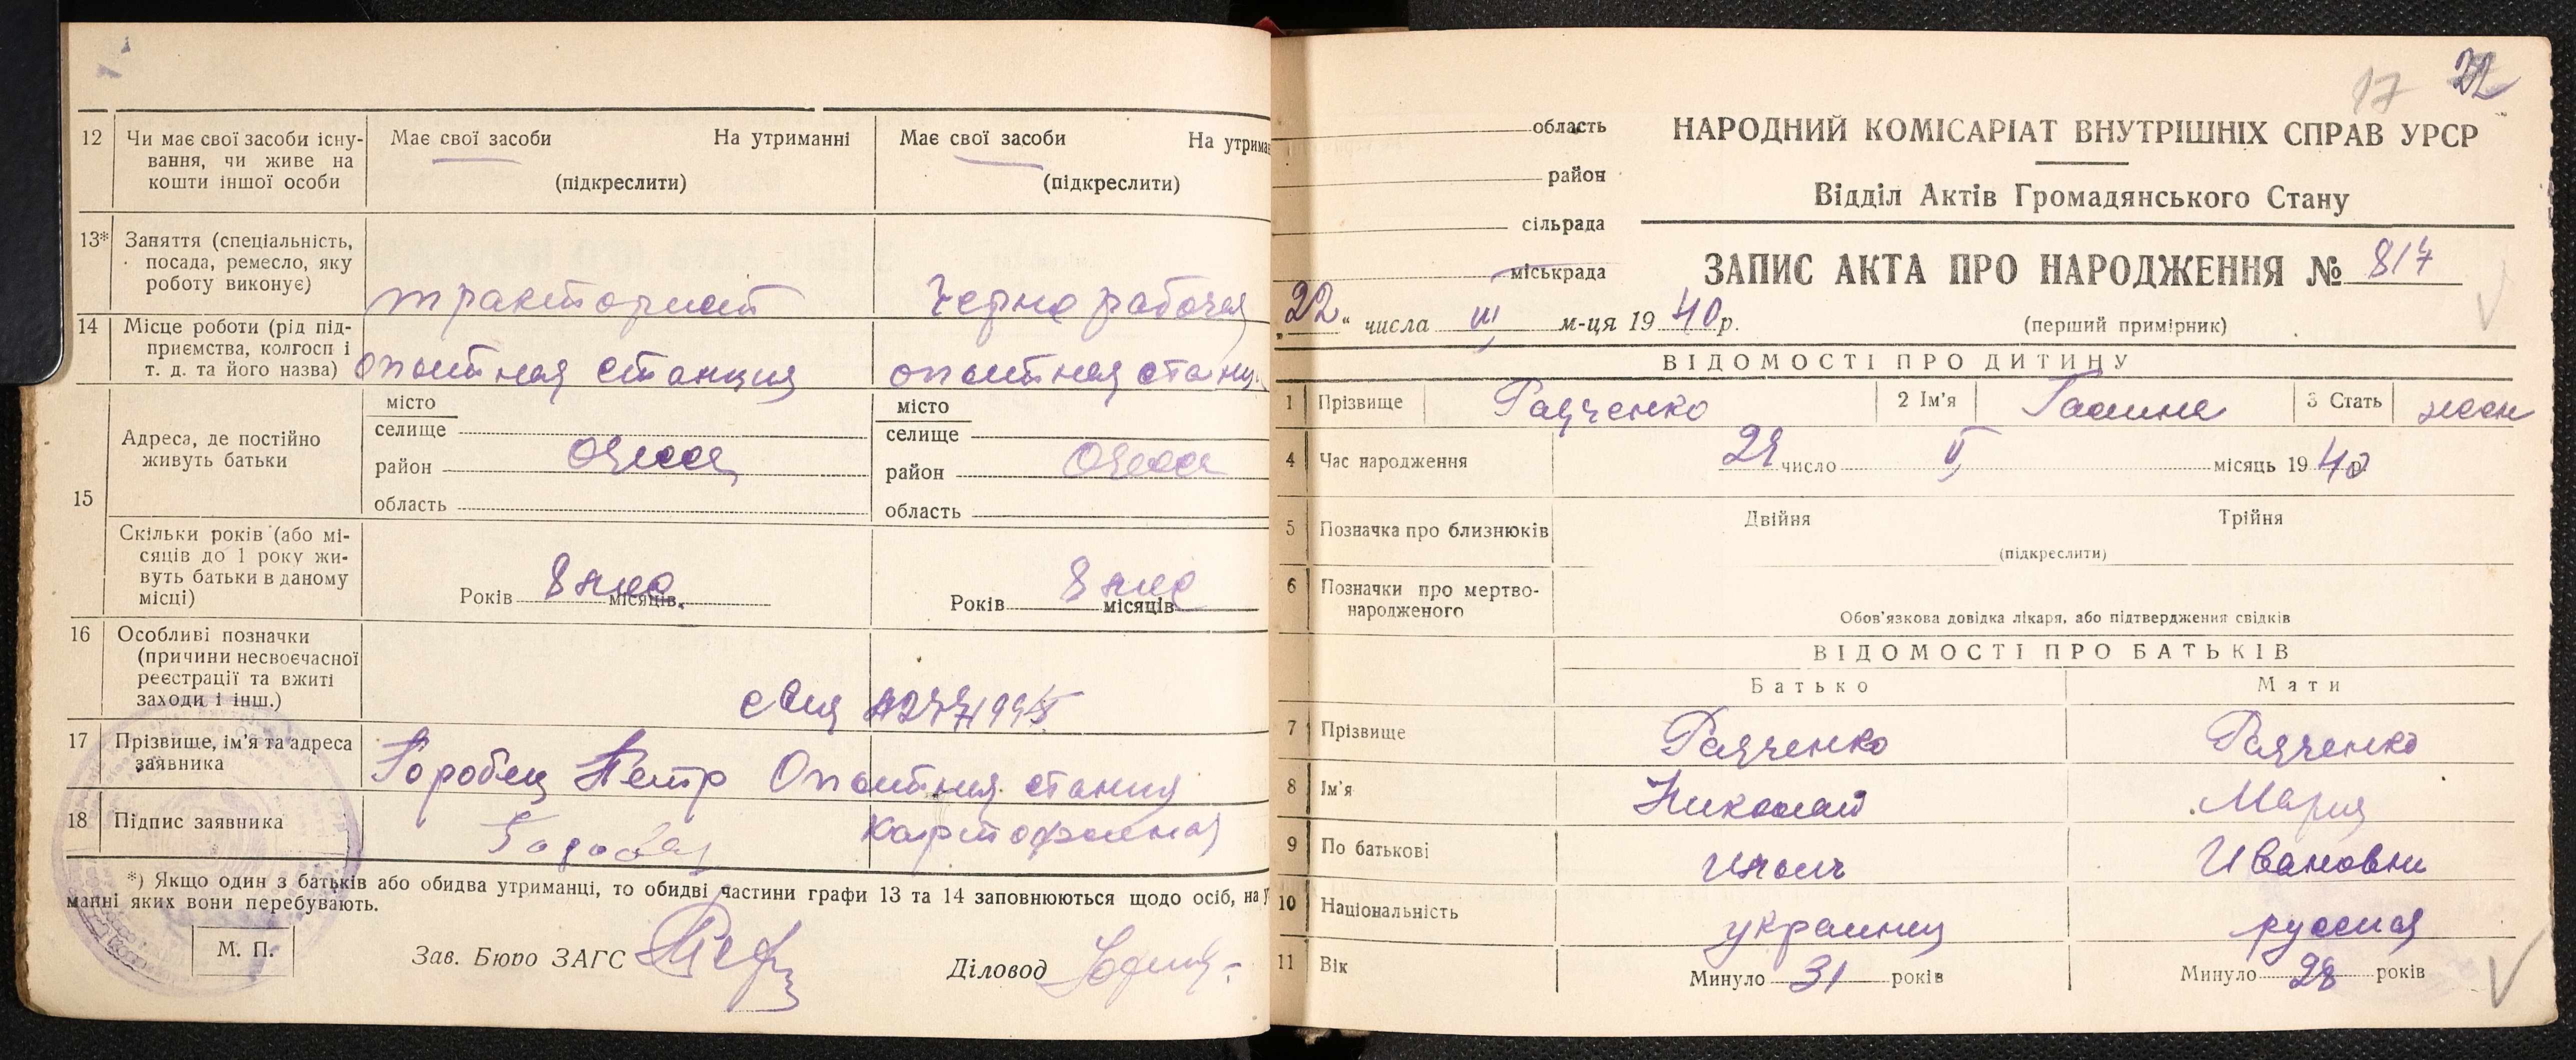 12
Чи має свої засоби існу-
вання, чи живе на
кошти іншої особи
Має свої засоби На утриманні
(підкреслити)
Має свої засоби На утрима
(підкреслити)
13*
Заняття (спеціальність,
посада, ремесло, яку
роботу виконує)
тракторист
черно рабочая
14
Місце роботи (рід під-
приємства, колгосп і
т. д. та його назва)
опытная станция
опытная станц
15
Адреса, де постійно
живуть батьки
місто
селище
район Одесса
область
місто
селище
район Одесса
область
Скільки років (або мі-
сяців до 1 року жи-
вуть батьки в даному
місці)
Років 8 мес місяців.
Років 8 мес місяців
16
Особливі позначки
(причини несвоєчасної
реєстрації та вжиті
заходи і інш.)
17
Прізвище, ім'я та адреса
заявника
Горобец Петр Опытная станция
картофельная
18
Підпис заявника
*) Якщо один з батьків або обидва утриманці, то обидві частини графи 13 та 14 заповнюються щодо осіб, на у
манні яких вони перебувають.
М. П.
Зав. Бюро ЗАГС
Діловод
17 22
область
район
сільрада
міськрада
НАРОДНИЙ КОМІСАРІАТ ВНУТРІШНІХ СПРАВ УРСР
Відділ Актів Громадянського Стану
ЗАПИС АКТА ПРО НАРОДЖЕННЯ № 817
„22" числа III м-ця 1940р.
(перший примірник)
ВІДОМОСТІ ПРО ДИТИНУ
1 Прізвище Радченко 2 Ім'я Галина 3 Стать жен
4 Час народження 29 число II місяць 1940р
5 Позначка про близнюків Двійня Трійня
(підкреслити)
6 Позначки про мертво-
народженого
Обов'язкова довідка лікаря, або підтвердження свідків
ВІДОМОСТІ ПРО БАТЬКІВ
Батько Мати
7 Прізвище Радченко Радченко
8 Ім'я Николай Мария
9 По батькові Ильич Ивановна
10 Національність украинец русская
11 Вік Минуло 31 років Минуло 28 років